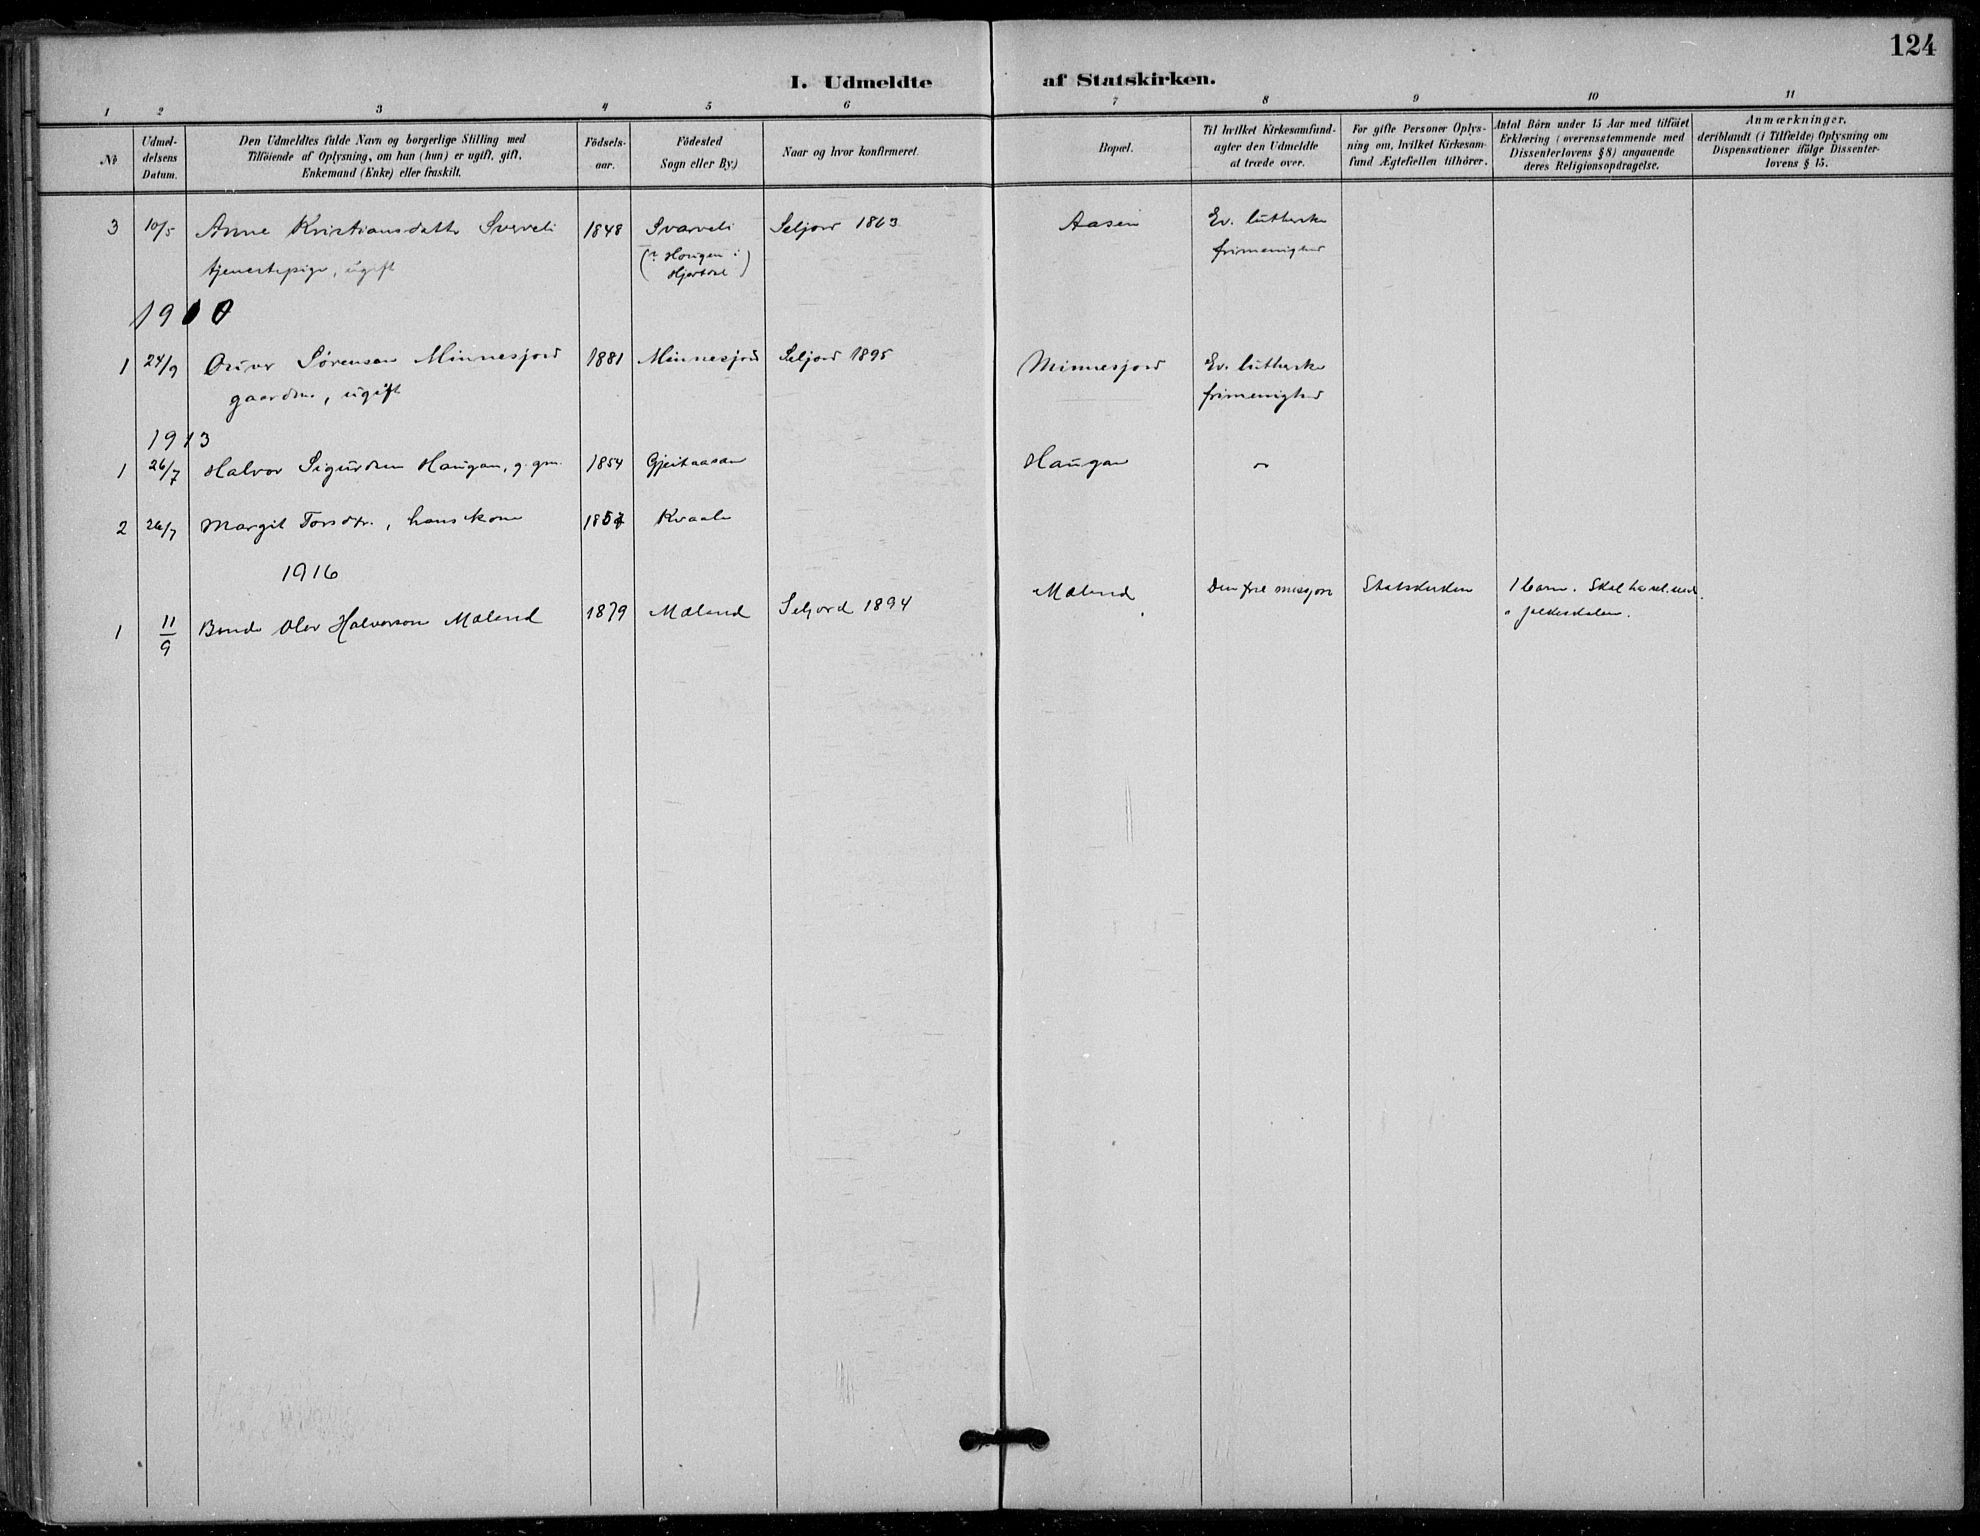 124
I. Udmeldte af Statskirken.
1 2 3 4 5 6 7 8 9 10 11
No
Udmel-
delsens
Datum.
Den Udmeldtes fulde Navn og borgerlige Stilling med
Tilföiende af Oplysning, om han (hun) er ugift, gift,
Enkemand (Enke) eller fraskilt.
Födsels-
aar.
Födested
Sogn eller By.)
Naar og hvor konfirmeret.
Bopæl.
Til hvilket Kirkesamfund-
agter den Udmeldte
at træde over.
For gifte Personer Oplys-
ning om, hvilket Kirkesam-
fund Ægtefællen tilhörer.
Antal Börn under 15 Aar med tilföiet
Erklæring (overensstemmende med
Dissenterlovens § 8) angaaende
deres Religionsopdragelse.
Anmærkninger,
deriblandt (i Tilfælde) Oplysning om
Dispensationer ifölge Dissenter-
lovens § 15.
3 10/5 Anne Kristiansdatter Svarveli 1848 Svarveli Seljord 1863 Aasen Ev. lutherske
tjenestepige, ugift (? Haugen i Hjartdal) frimenighed
1910
1 24/9 Sørensen Minnesjord 1881 Minnesjord Seljord 1895 Minnesjord Ev. lutherske
gaardm., ugift frimenighed
1913
1 26/7 Halvor Sigurdsen Haugan, g. gm. 1854 Gjeitaasan Haugan "
2 26/7 Margit Torsdtr., hans kone 1857 Kvaale
1916
1 11/9 Bonde Olav Halvorson Mæland 1879 Mæland Seljord 1894 Mæland Den frie misjon Statskirken 1 barn. Skal